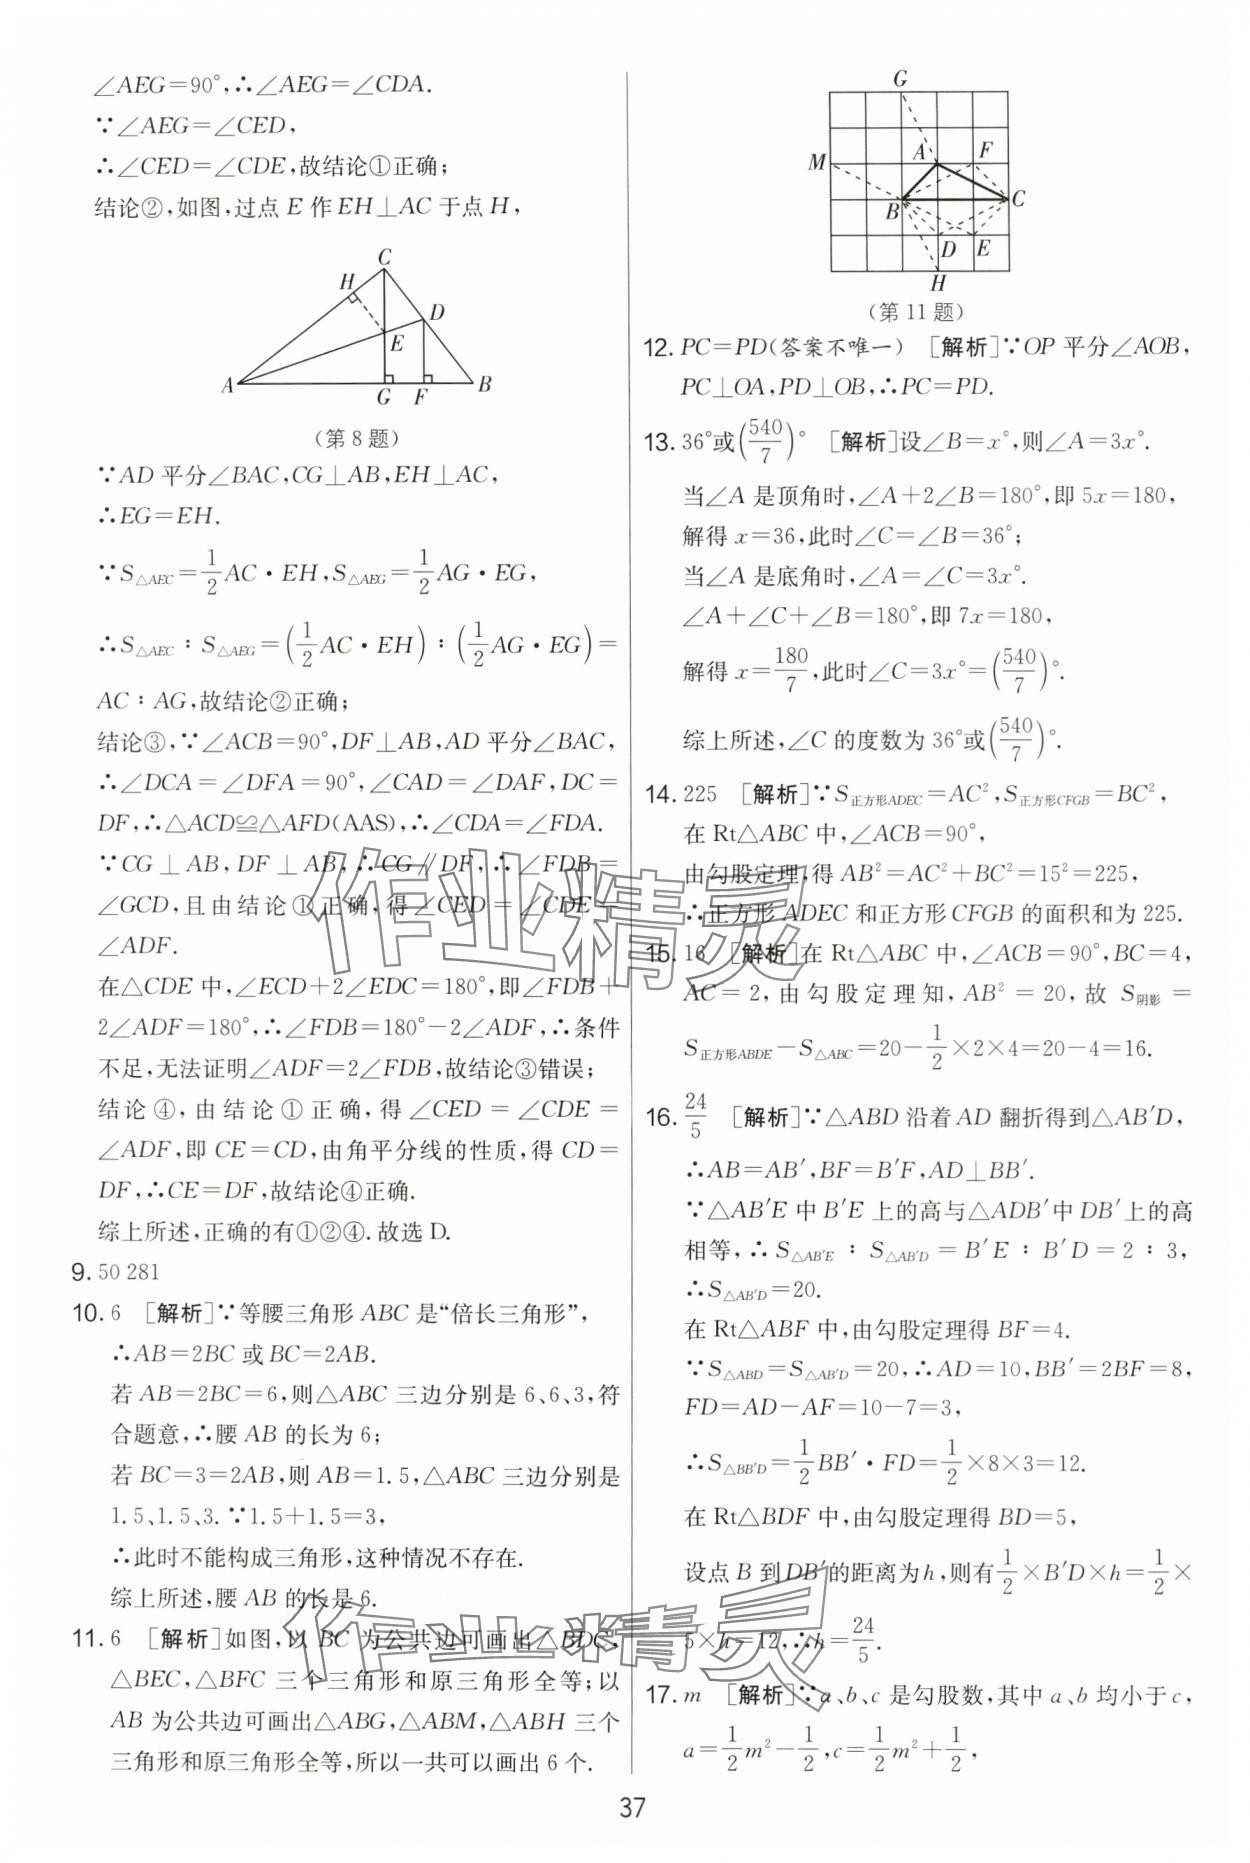 ∠AEG=90°,∴∠AEG=∠CDA.
∵∠AEG=∠CED,
∴∠CED=∠CDE,故结论①正确;
结论②,如图,过点E作EH⊥AC于点H,
C
H
D
E
A
G
F
B
(第8题)
∵AD平分∠BAC,CG⊥AB,EH⊥AC,
∴EG=EH.
∵S△AEC=1/2AC·EH,S△AEG=1/2AG·EG,
∴S△AEC∶S△AEG=(1/2AC·EH)∶(1/2AG·EG)=
AC∶AG,故结论②正确;
结论③,∵∠ACB=90°,DF⊥AB,AD平分∠BAC,
∴∠DCA=∠DFA=90°,∠CAD=∠DAF,DC=
DF,∴△ACD≌△AFD(AAS),∴∠CDA=∠FDA.
∵CG⊥AB,DF⊥AB,∴CG∥DF,∴∠FDB=
∠GCD,且由结论①正确,得∠CED=∠CDE=
∠ADF.
在△CDE中,∠ECD+2∠EDC=180°,即∠FDB+
2∠ADF=180°,∴∠FDB=180°-2∠ADF,∴条件
不足,无法证明∠ADF=2∠FDB,故结论③错误;
结论④,由结论①正确,得∠CED=∠CDE=
∠ADF,即CE=CD,由角平分线的性质,得CD=
DF,∴CE=DF,故结论④正确.
综上所述,正确的有①②④.故选D.
9. 50 281
10. 6 [解析]∵等腰三角形ABC是“倍长三角形”,
∴AB=2BC或BC=2AB.
若AB=2BC=6,则△ABC三边分别是6、6、3,符
合题意,∴腰AB的长为6;
若BC=3=2AB,则AB=1.5,△ABC三边分别是
1.5、1.5、3.∵1.5+1.5=3,
∴此时不能构成三角形,这种情况不存在.
综上所述,腰AB的长是6.
11. 6 [解析]如图,以BC为公共边可画出△BDC,
△BEC,△BFC三个三角形和原三角形全等;以
AB为公共边可画出△ABG,△ABM,△ABH三个
三角形和原三角形全等,所以一共可以画出6个.
G
M
A
F
B
C
D
E
H
(第11题)
12. PC=PD(答案不唯一) [解析]∵OP平分∠AOB,
PC⊥OA,PD⊥OB,∴PC=PD.
13. 36°或(540/7)° [解析]设∠B=x°,则∠A=3x°.
当∠A是顶角时,∠A+2∠B=180°,即5x=180,
解得x=36,此时∠C=∠B=36°;
当∠A是底角时,∠A=∠C=3x°.
∠A+∠C+∠B=180°,即7x=180,
解得x=180/7,此时∠C=3x°=(540/7)°.
综上所述,∠C的度数为36°或(540/7)°.
14. 225 [解析]∵S正方形ADEC=AC²,S正方形CFGB=BC²,
在Rt△ABC中,∠ACB=90°,
由勾股定理,得AB²=AC²+BC²=15²=225,
∴正方形ADEC和正方形CFGB的面积和为225.
15. 16 [解析]在Rt△ABC中,∠ACB=90°,BC=4,
AC=2,由勾股定理知,AB²=20,故S阴影=
S正方形ABDE-S△ABC=20-1/2×2×4=20-4=16.
16. 24/5 [解析]∵△ABD沿着AD翻折得到△AB′D,
∴AB=AB′,BF=B′F,AD⊥BB′.
∵△AB′E中B′E上的高与△ADB′中DB′上的高
相等,∴S△AB′E∶S△AB′D=B′E∶B′D=2∶3,
∴S△AB′D=20.
在Rt△ABF中,由勾股定理得BF=4.
∵S△ABD=S△AB′D=20,∴AD=10,BB′=2BF=8,
FD=AD-AF=10-7=3,
∴S△BB′D=1/2BB′·FD=1/2×8×3=12.
在Rt△BDF中,由勾股定理得BD=5,
设点B到DB′的距离为h,则有1/2×B′D×h=1/2×
5×h=12,∴h=24/5.
17. m [解析]∵a、b、c是勾股数,其中a、b均小于c,
a=1/2m²-1/2,c=1/2m²+1/2,
37
作业精灵
作业精灵